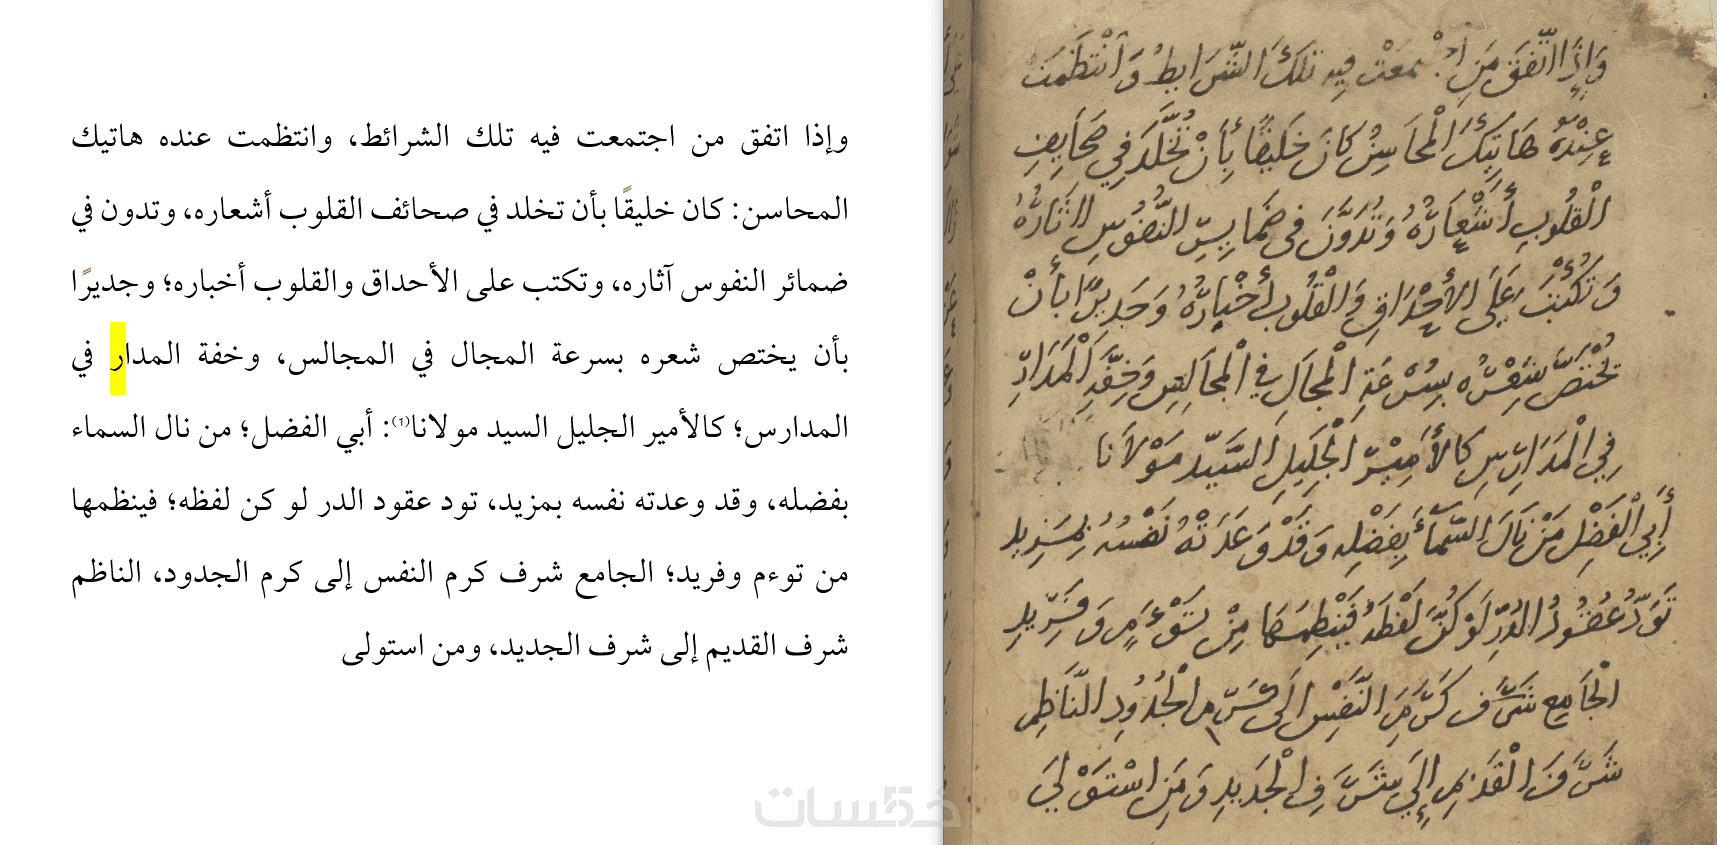 وَإِذَا اتَّفَقَ مَنِ اجْتَمَعَتْ فِيهِ تِلْكَ الشَّرَايِطُ وَانْتَظَمَتْ
عِنْدَهُ هَاتِيكَ الْمَحَاسِنُ كَانَ خَلِيقًا بِأَنْ تُخَلَّدَ فِي صَحَايِفِ
الْقُلُوبِ أَشْعَارُهُ وَتُدَوَّنَ فِي ضَمَايِرِ النُّفُوسِ اثَارُهُ
وَتُكْتَبَ عَلَى الأَحْدَاقِ وَالْقُلُوبِ أَخْبَارُهُ وَجَدِيرًا بِأَنْ
يُخْتَصَّ شِعْرُهُ بِسُرْعَةِ الْمَجَالِ فِي الْمَجَالِسِ وَخِفَّةِ الْمَدَارِ
فِي الْمَدَارِسِ كَالأَمِيْرِ الْجَلِيلِ السَّيِّدِ مَوْلَانَا
أَبِي الْفَضْلِ مَنْ نَالَ السَّمَآءَ بِفَضْلِهِ وَقَدْ وَعَدَتْهُ نَفْسُهُ بِمَزِيدِ
تَوَدُّ عُقُودُ الدُّرِّ لَوْ كُنَّ لَفْظَهُ فَيَنْظِمُهَا مِنْ تَوْءَمٍ وَفَرِيدِ
الْجَامِعِ شَرَفَ كَرَمِ النَّفْسِ إِلَى كَرَمِ الْجُدُودِ النَّاظِمِ
شَرَفَ الْقَدِيمِ إِلَى شَرَفِ الْجَدِيدِ وَمَنِ اسْتَوْلَى
وإذا اتفق من اجتمعت فيه تلك الشرائط، وانتظمت عنده هاتيك
المحاسن: كان خليقًا بأن تخلد في صحائف القلوب أشعاره، وتدون في
ضمائر النفوس آثاره، وتكتب على الأحداق والقلوب أخباره؛ وجديرًا
بأن يختص شعره بسرعة المجال في المجالس، وخفة المدار في
المدارس؛ كالأمير الجليل السيد مولانا(٦): أبي الفضل؛ من نال السماء
بفضله، وقد وعدته نفسه بمزيد، تود عقود الدر لو كن لفظه؛ فينظمها
من توءم وفريد؛ الجامع شرف كرم النفس إلى كرم الجدود، الناظم
شرف القديم إلى شرف الجديد، ومن استولى
خمسات